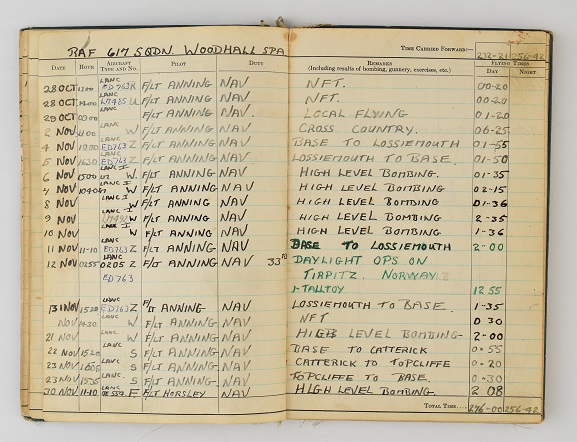 RAF 617 SQDN. WOODHALL SPA
TIME CARRIED FORWARD:— 232-21 256-42
DATE HOUR AIRCRAFT TYPE AND NO. PILOT DUTY REMARKS (Including results of bombing, gunnery, exercises, etc.) FLYING TIMES DAY NIGHT
28 OCT LANC ED763 F/LT ANNING NAV NFT. 00-20
28 OCT LANC U F/LT ANNING NAV NFT. 00-20
29 OCT F/LT ANNING NAV. LOCAL FLYING 01-20
2 NOV LANC W F/LT ANNING NAV CROSS COUNTRY. 06-25
4 NOV LANC ED763 Z F/LT ANNING NAV BASE TO LOSSIEMOUTH 01-55
5 NOV LANC ED763 Z F/LT ANNING NAV LOSSIEMOUTH TO BASE. 01-50
6 NOV 1500 LANC I W. F/LT ANNING NAV HIGH LEVEL BOMBING. 01-35
7 NOV 1040 LANC I W. F/LT ANNING NAV HIGH LEVEL BOMBING 02-15
8 NOV LANC I W F/LT ANNING NAV HIGH LEVEL BOMBING 01-36
9 NOV LANC I W F/LT ANNING NAV HIGH LEVEL BOMBING 2-35
10 NOV LANC I W F/LT ANNING NAV HIGH LEVEL BOMBING 1-36
11 NOV 11-10 LANC ED763 Z F/LT ANNING NAV BASE TO LOSSIEMOUTH 2-00
12 NOV 0255 LANC 0205 Z F/LT ANNING NAV 33RD DAYLIGHT OPS ON
ED763 TIRPITZ. NORWAY
1-TALLTOY 12 55
13 NOV 1520 LANC ED763 Z F/LT ANNING NAV LOSSIEMOUTH TO BASE. 1-35
NOV 1430 LANC W F/LT ANNING NAV NFT 0 30
21 NOV LANC W F/LT ANNING NAV HIGH LEVEL BOMBING 2-00
22 NOV 1520 LANC S F/LT ANNING NAV BASE TO CATTERICK 0-55
23 NOV LANC S F/LT ANNING NAV CATTERICK TO TOPCLIFFE 0-20
23 NOV 1535 LANC S F/LT ANNING NAV TOPCLIFFE TO BASE. 0-30
30 NOV 11-10 LANC F F/LT HORSLEY NAV HIGH LEVEL BOMBING 2 08
TOTAL TIME.... 276-00 256-42